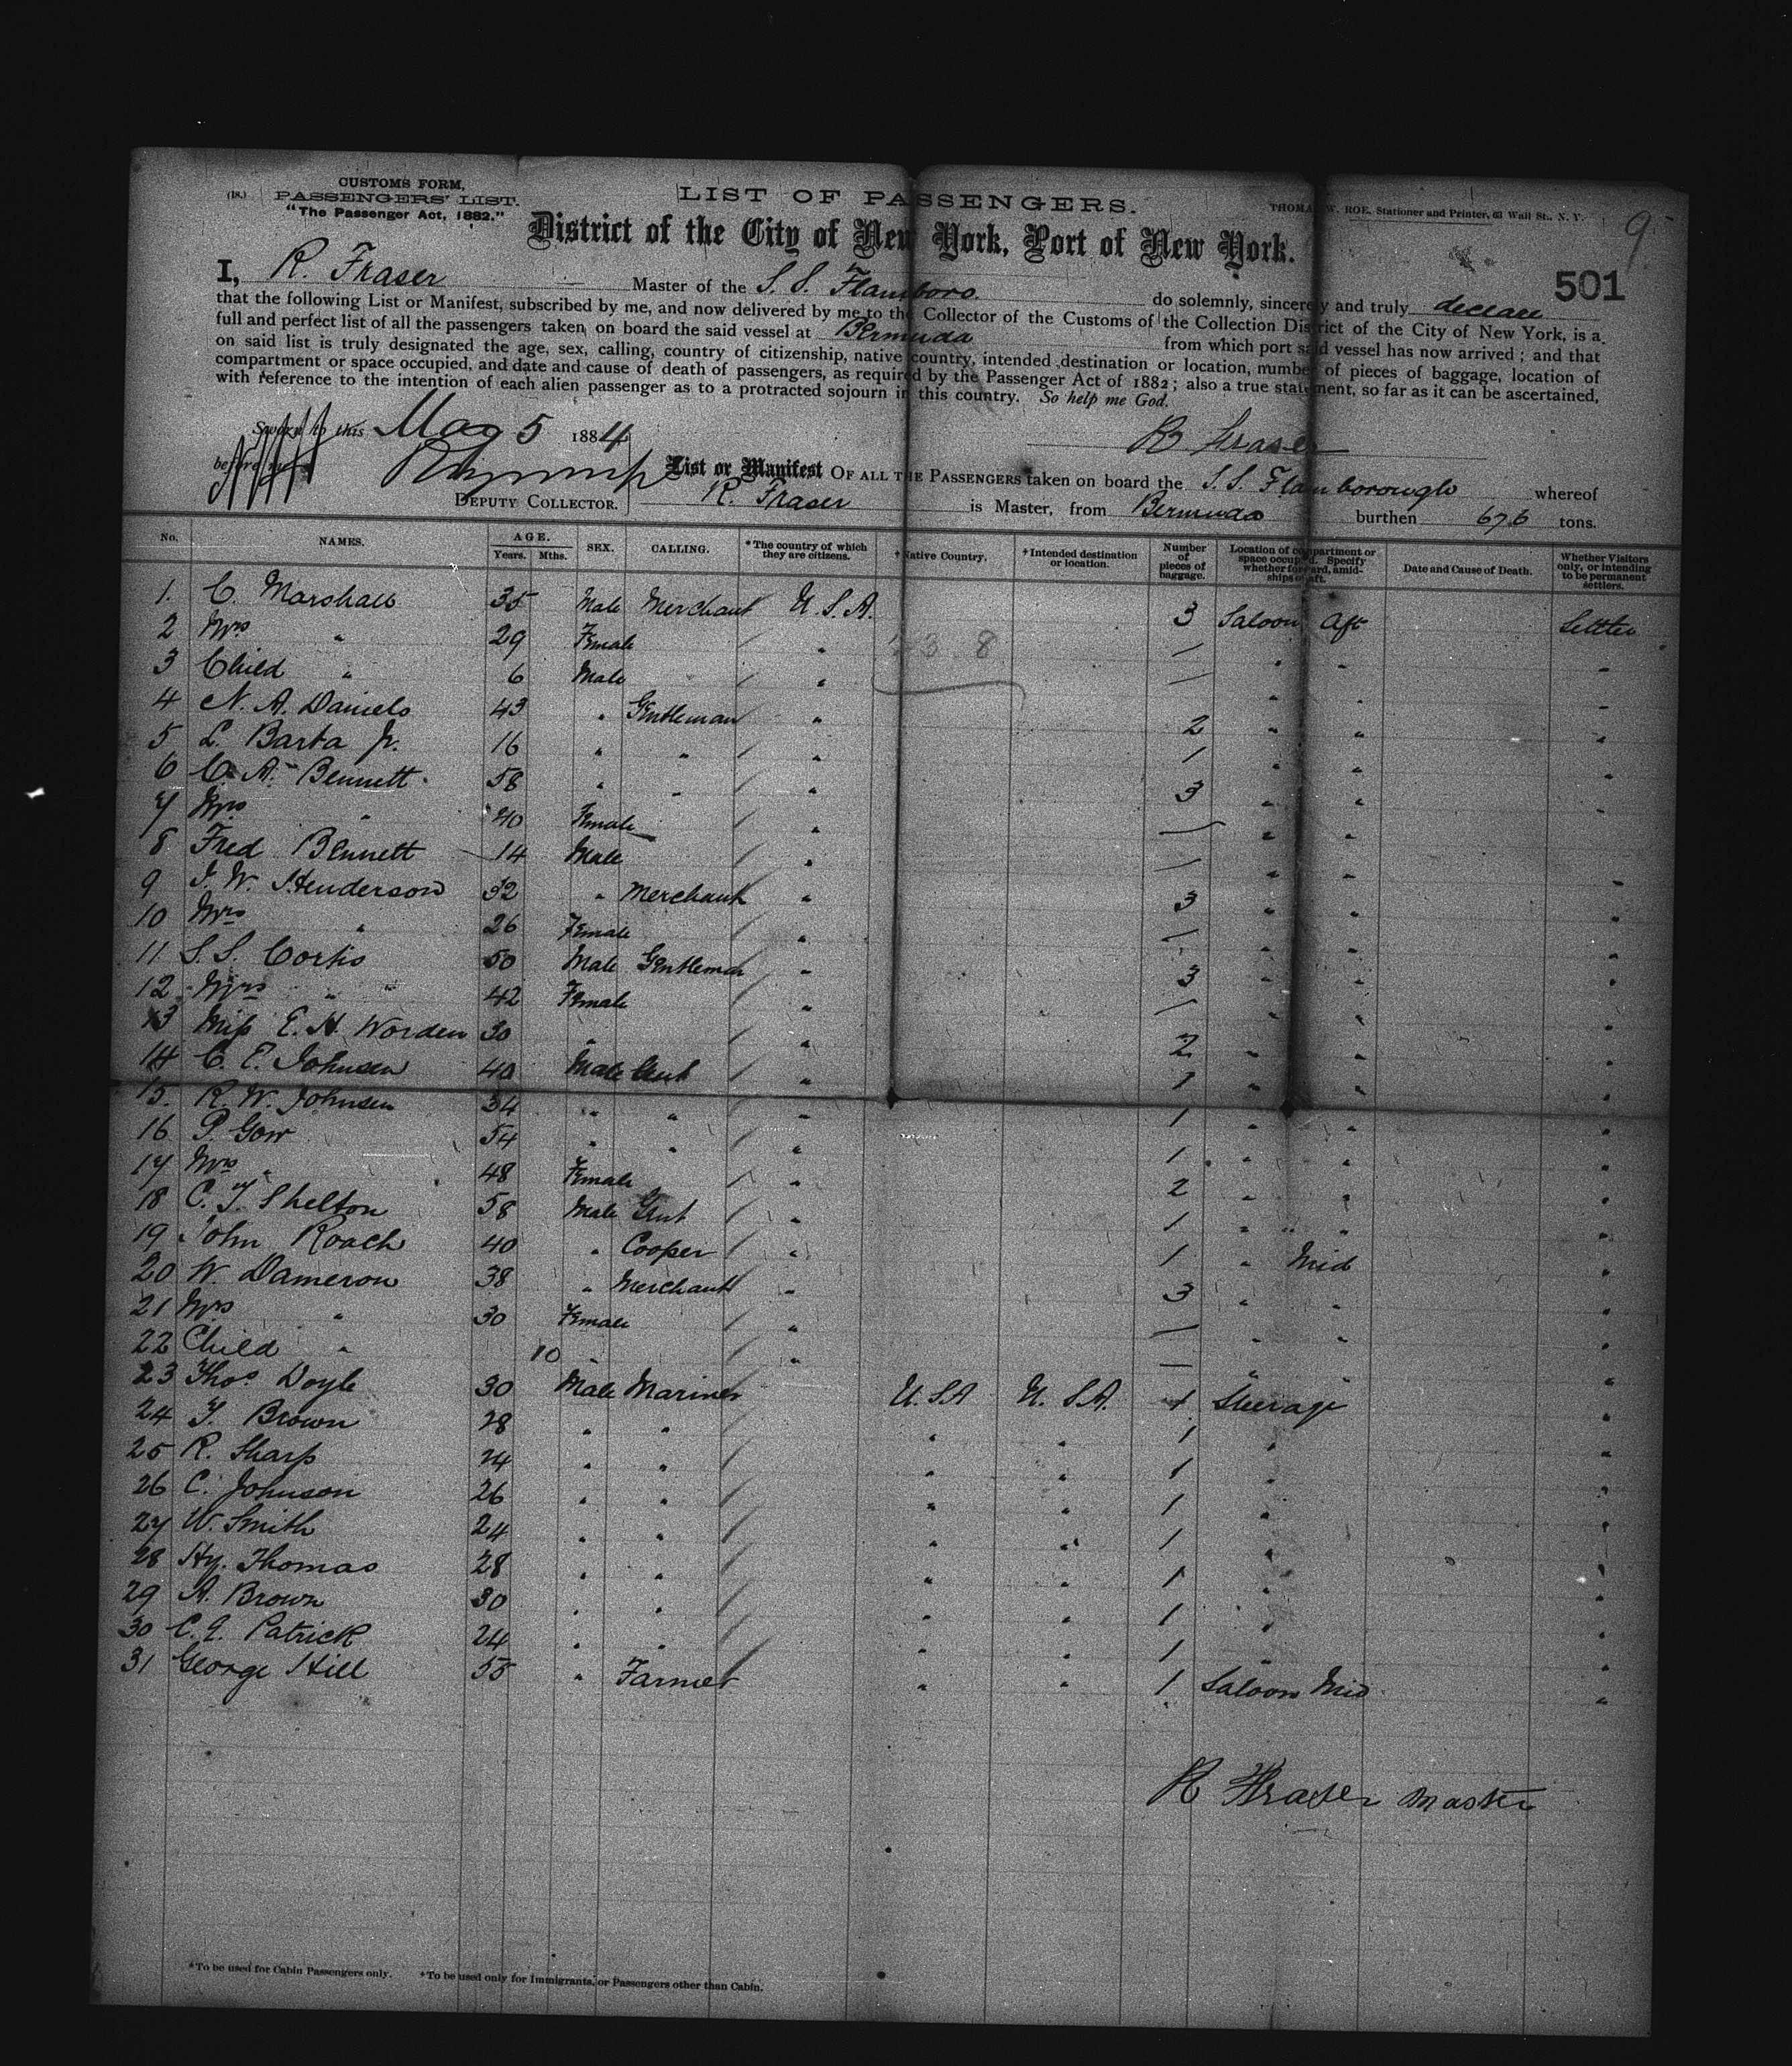 CUSTOMS FORM,
(18.) PASSENGERS' LIST.
"The Passenger Act, 1882."
LIST OF PASSENGERS.
THOMAS W. ROE, Stationer and Printer, 63 Wall St., N. Y.
9
District of the City of New York, Port of New York.
501
I, R. Fraser Master of the S. S. Flamboro. do solemnly, sincerely and truly declare
that the following List or Manifest, subscribed by me, and now delivered by me to the Collector of the Customs of the Collection District of the City of New York, is a
full and perfect list of all the passengers taken on board the said vessel at Bermuda from which port said vessel has now arrived; and that
on said list is truly designated the age, sex, calling, country of citizenship, native country, intended destination or location, number of pieces of baggage, location of
compartment or space occupied, and date and cause of death of passengers, as required by the Passenger Act of 1882; also a true statement, so far as it can be ascertained,
with reference to the intention of each alien passenger as to a protracted sojourn in this country. So help me God.
Sworn to this May 5 1884
R Fraser
before me
DEPUTY COLLECTOR.
List or Manifest OF ALL THE PASSENGERS taken on board the S. S. Flamborough whereof
R. Fraser is Master, from Bermuda burthen 676 tons.
No. NAMES. AGE. Years. Mths. SEX. CALLING. *The country of which they are citizens. †Native Country. †Intended destination or location. Number of pieces of baggage. Location of compartment or space occupied. Specify whether forward, amidships or aft. Date and Cause of Death. Whether Visitors only, or intending to be permanent settlers.
1. C. Marshall 35 Male Merchant U.S.A. 3 Saloon Aft Settler
2 Mrs " 29 Female " — " " "
3 Child " 6 Male " — " " "
4 N. A. Daniels 43 " Gentleman " 2 " " "
5 L. Barta Jr. 16 " " " 1 " " "
6 C. A. Bennett 58 " " " 3 " " "
7 Mrs " 40 Female " — " " "
8 Fred Bennett 14 Male " — " " "
9 J. W. Henderson 32 " Merchant " 3 " " "
10 Mrs " 26 Female " — " " "
11 S. S. Cortis 50 Male Gentleman " 3 " " "
12 Mrs " " 42 Female " — " " "
13 Miss E. H. Worden 30 " " 2 " " "
14 C. E. Johnsen 40 Male Gent " 1 " " "
15. R. W. Johnsen 34 " " " 1 " " "
16 P. Gow 54 " " " 1 " " "
17 Mrs " 48 Female " 2 " " "
18 C. T. Shelton 58 Male Gent " 1 " " "
19 John Roach 40 " Cooper " 1 " Mid "
20 W. Dameron 38 " Merchant " 3 " " "
21 Mrs " 30 Female " — " " "
22 Child " 10 " " — " " "
23 Thos Doyle 30 Male Mariner U.S.A U.S.A. 1 Steerage "
24 T. Brown 28 " " " " 1 " "
25 R. Sharp 24 " " " " 1 " "
26 C. Johnson 26 " " " " 1 " "
27 W. Smith 24 " " " " 1 " "
28 Hy. Thomas 28 " " " " 1 " "
29 A. Brown 30 " " " " 1 " "
30 C. E. Patrick 24 " " " " 1 " "
31 George Hill 55 " Farmer " " 1 Saloon Mid "
R Fraser Master
*To be used for Cabin Passengers only. †To be used only for Immigrants, or Passengers other than Cabin.